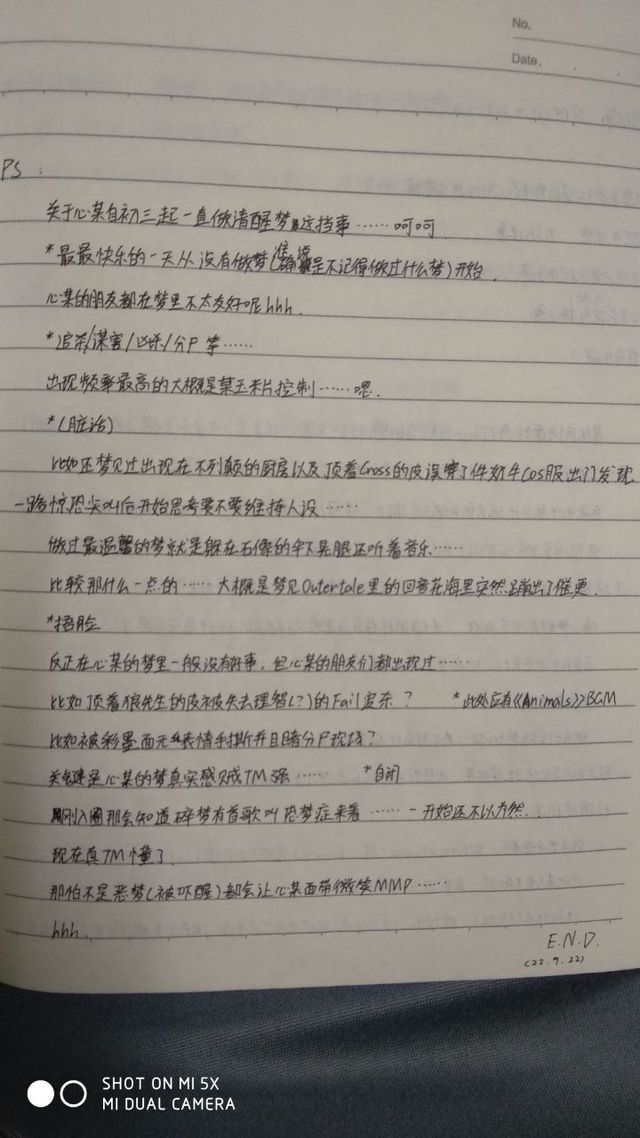 No.
Date.
PS：
关于心某自初三起一直做清醒梦这挡事……呵呵.
*最最快乐的一天从没有做梦(准确是不记得做过什么梦)开始.
心某的朋友都在梦里不太友好呢hhh.
*追杀/谋害/凶杀/分尸 等……
出现频率最高的大概是某玉米片控制……嗯.
*(脏话)
比如还梦见过出现在不列颠的厨房以及顶着Cross的皮误穿了件奶牛cos服出门发现
一路惊恐尖叫后开始思考要不要维持人设……
做过最温馨的梦就是躲在石像的伞下晃腿还听着音乐……
比较那什么一点的……大概是梦见Outertale里的回音花海里突然蹦出了催更.
*捂脸
反正在心某的梦里一般没有好事，但心某的朋友们都出现过……
比如顶着狼先生的皮被失去理智(?)的Fail追杀？ *此处应有《Animals》BGM
比如被彩墨面无表情手撕并且睹分尸现场？
关键是心某的梦真实感贼TM强…… *自闭
刚入圈那会知道碎梦有首歌叫恐梦症来着……一开始还不以为然..
现在真TM懂了.
那怕不是恶梦(被吓醒)都会让心某面带微笑MMP……
hhh.
E.N.D.
(22.9.22)
SHOT ON MI 5X
MI DUAL CAMERA